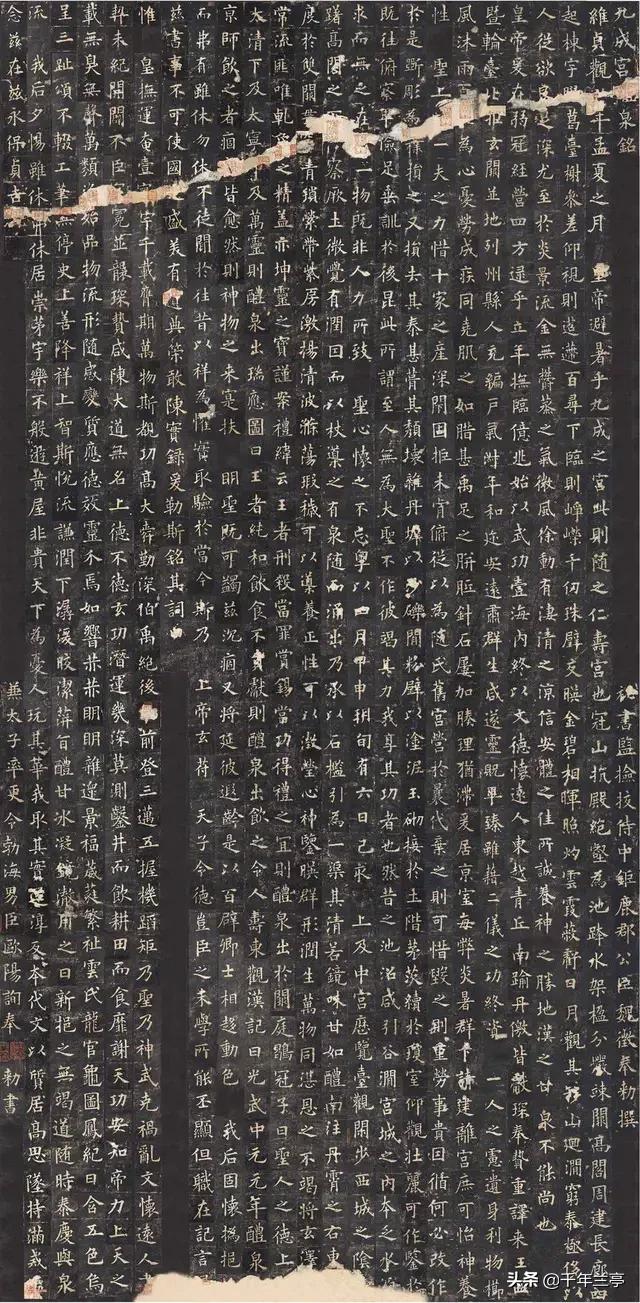 九成宮泉銘 秘書監檢挍侍中鉅鹿郡公臣魏徵奉勅撰
維貞觀年孟夏之月 皇帝避暑乎九成之宮此則隨之仁壽宮也冠山抗殿絕壑為池跨水架楹分巖竦闕高閣周建長廊四
起棟宇膠葛臺榭參差仰視則迢遰百尋下臨則崢嶸千仞珠璧交暎金碧相暉照灼雲霞蔽虧日月觀其移山迴澗窮泰極侈以
人從欲良足深尤至於炎景流金無鬱蒸之氣微風徐動有淒清之涼信安體之佳所誠養神之勝地漢之甘泉不能尚也
皇帝爰在弱冠經營四方逮乎立年撫臨億兆始以武功壹海內終以文德懷遠人東越青丘南踰丹徼皆獻琛奉贄重譯來王西
暨輪臺北拒玄闕並地列州縣人充編戶氣淑年和迩安遠肅群生咸遂靈貺畢臻雖藉二儀之功終資 一人之慮遺身利物櫛
風沐雨為心憂勞成疾同堯肌之如腊甚禹足之胼胝針石屢加腠理猶滯爰居京室每弊炎暑群下請建離宮庶可怡神養性
聖上一夫之力惜十家之產深閉固拒未肯俯從以為隨氏舊宮營於曩代棄之則可惜毀之則重勞事貴因循何必改作
於是斲彫為樸損之又損去其泰甚葺其頹壞雜丹墀以沙礫間粉壁以塗泥玉砌接於土階茅茨續於瓊室仰觀壯麗可作鑒於
既往俯察卑儉足垂訓於後昆此所謂至人無為大聖不作彼竭其力我享其功者也然昔之池沼咸引谷澗宮城之內本乏水源
求而無之在一物既非人力所致 聖心懷之不忘粵以四月甲申朔旬有六日己亥 上及中宮歷覽臺觀閑步西城之陰躊
躇高閣之俯察厥土微覺有潤因而以杖導之有泉隨而涌出乃承以石檻引為一渠其清若鏡味甘如醴南注丹霄之右東流
度於雙闕青瑣縈帶紫房激揚清波滌蕩瑕穢可以導養正性可以澂瑩心神鑒暎群形潤生萬物同湛恩之不竭將玄澤之
常流匪唯乾象之精蓋亦坤靈之寶謹案禮緯云王者刑殺當罪賞錫當功得禮之宜則醴泉出於闕庭鶡冠子曰聖人之德上及
太清下及太寧中及萬靈則醴泉出瑞應圖曰王者純和飲食不貢獻則醴泉出飲之令人壽東觀漢記曰光武中元元年醴泉出
京師飲之者痼疾皆愈然則神物之來寔扶 明聖既可蠲茲沉痼又將延彼遐齡是以百辟卿士相趨動色 我后固懷撝挹推
而弗有雖休勿休不徒聞於往昔以祥為懼實取驗於當今斯乃 上帝玄符 天子令德豈臣之末學所能丕顯但職在記言屬
茲書事不可使國之盛美有遺典策敢陳實錄爰勒斯銘其詞曰
惟 皇撫運奄壹寰宇千載膺期萬物斯覩功高大舜勤深伯禹絕後前登三邁五握機蹈矩乃聖乃神武克禍亂文懷遠人書
契未紀開闢不臣冠冕並襲琛贄咸陳大道無名上德不德玄功潛運幾深莫測鑿井而飲耕田而食靡謝天功安知帝力上天之
載無臭無聲萬類資始品物流形隨感變質應德效靈介焉如響赫赫明明雜遝景福葳蕤繁祉雲氏龍官龜圖鳳紀日含五色烏
呈三趾頌不輟工筆無停史上善降祥上智斯悅流謙潤下潺湲皎潔蓱旨醴甘冰凝鏡澈用之日新挹之無竭道隨時泰慶與泉
流 我后夕惕雖休弗休居崇茅宇樂不般遊黃屋非貴天下為憂人玩其華我取其實還淳反本代文以質居高思墜持滿戒溢
念茲在茲永保貞吉 兼太子率更令勃海男臣歐陽詢奉 勅書
头条@千年兰亭